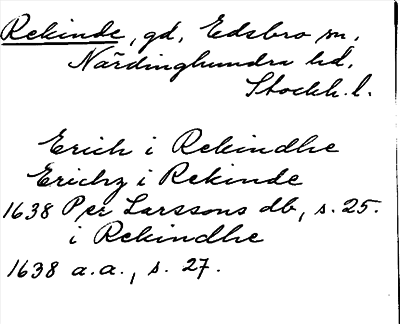 Rekinde, gd, Edsbro sn,
Närdinghundra hd,
Stockh. l.
Erich i Rekindhe
Erichz i Rekinde
1638 Per Larssons db, s. 25.
i Rekindhe
1638 a.a., s. 27.